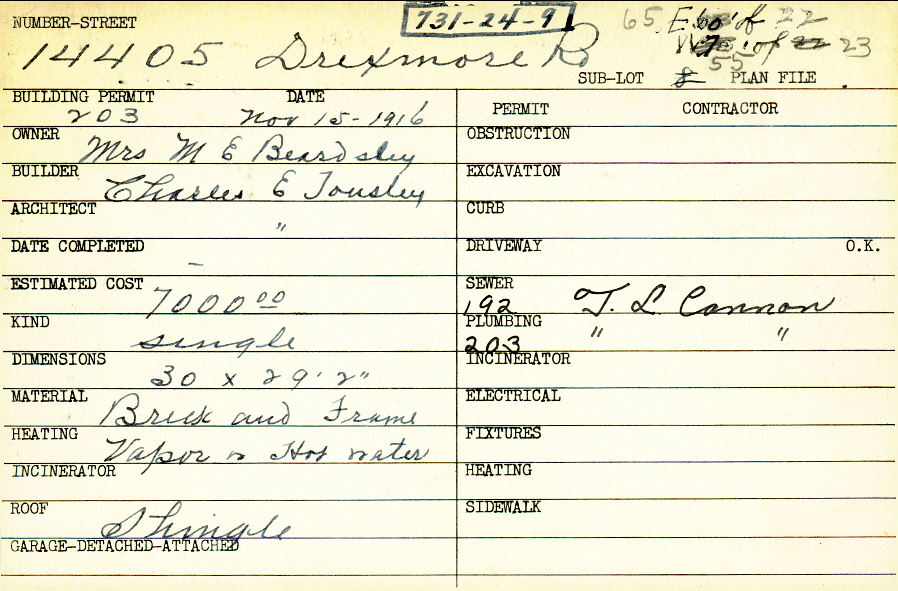 NUMBER-STREET 731-24-9 65 E 60' of 22
14405 Drexmore Rd W of 23
55
SUB-LOT PLAN FILE
BUILDING PERMIT DATE PERMIT CONTRACTOR
203 Nov 15-1916
OWNER OBSTRUCTION
Mrs M E Beardsley
BUILDER EXCAVATION
Charles E Tousley
ARCHITECT CURB
"
DATE COMPLETED DRIVEWAY O.K.
–
ESTIMATED COST SEWER
7000 00 192 T. L. Cannon
KIND PLUMBING " "
single 203
DIMENSIONS INCINERATOR
30 x 29' 2"
MATERIAL ELECTRICAL
Brick and Frame
HEATING FIXTURES
Vapor or Hot water
INCINERATOR HEATING
ROOF SIDEWALK
Shingle
GARAGE-DETACHED-ATTACHED